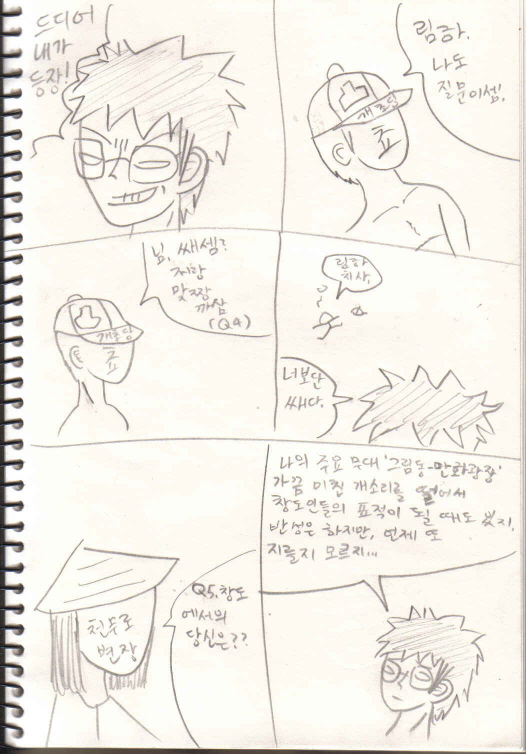 드디어
내가
등장!
림하.
나도
질문이셈.
개초딩
초
님, 쌔셈?
저랑
맞짱
까삼
(Q4)
개초딩
초
림하
치삼.
너보단
쌔다.
나의 주요 무대 '그림동-만화광장'
가끔 미친 개소리를 떨어서
창도인들의 표적이 될 때도 있지.
반성은 하지만, 언제 또
지를지 모르지...
Q5.창도
에서의
당신은??
천두로
변장